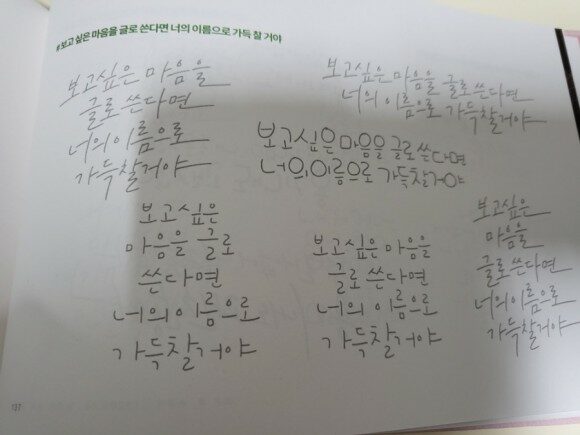 #보고 싶은 마음을 글로 쓴다면 너의 이름으로 가득 찰 거야
보고싶은 마음을
글로 쓴다면
너의 이름으로
가득찰거야
보고싶은 마음을 글로 쓴다면
너의 이름으로 가득찰거야
보고싶은 마음을 글로 쓴다면
너의 이름으로 가득찰거야
보고싶은
마음을 글로
쓴다면
너의 이름으로
가득찰거야
보고싶은 마음을
글로 쓴다면
너의 이름으로
가득찰거야
보고싶은
마음을
글로 쓴다면
너의 이름으로
가득찰거야
137